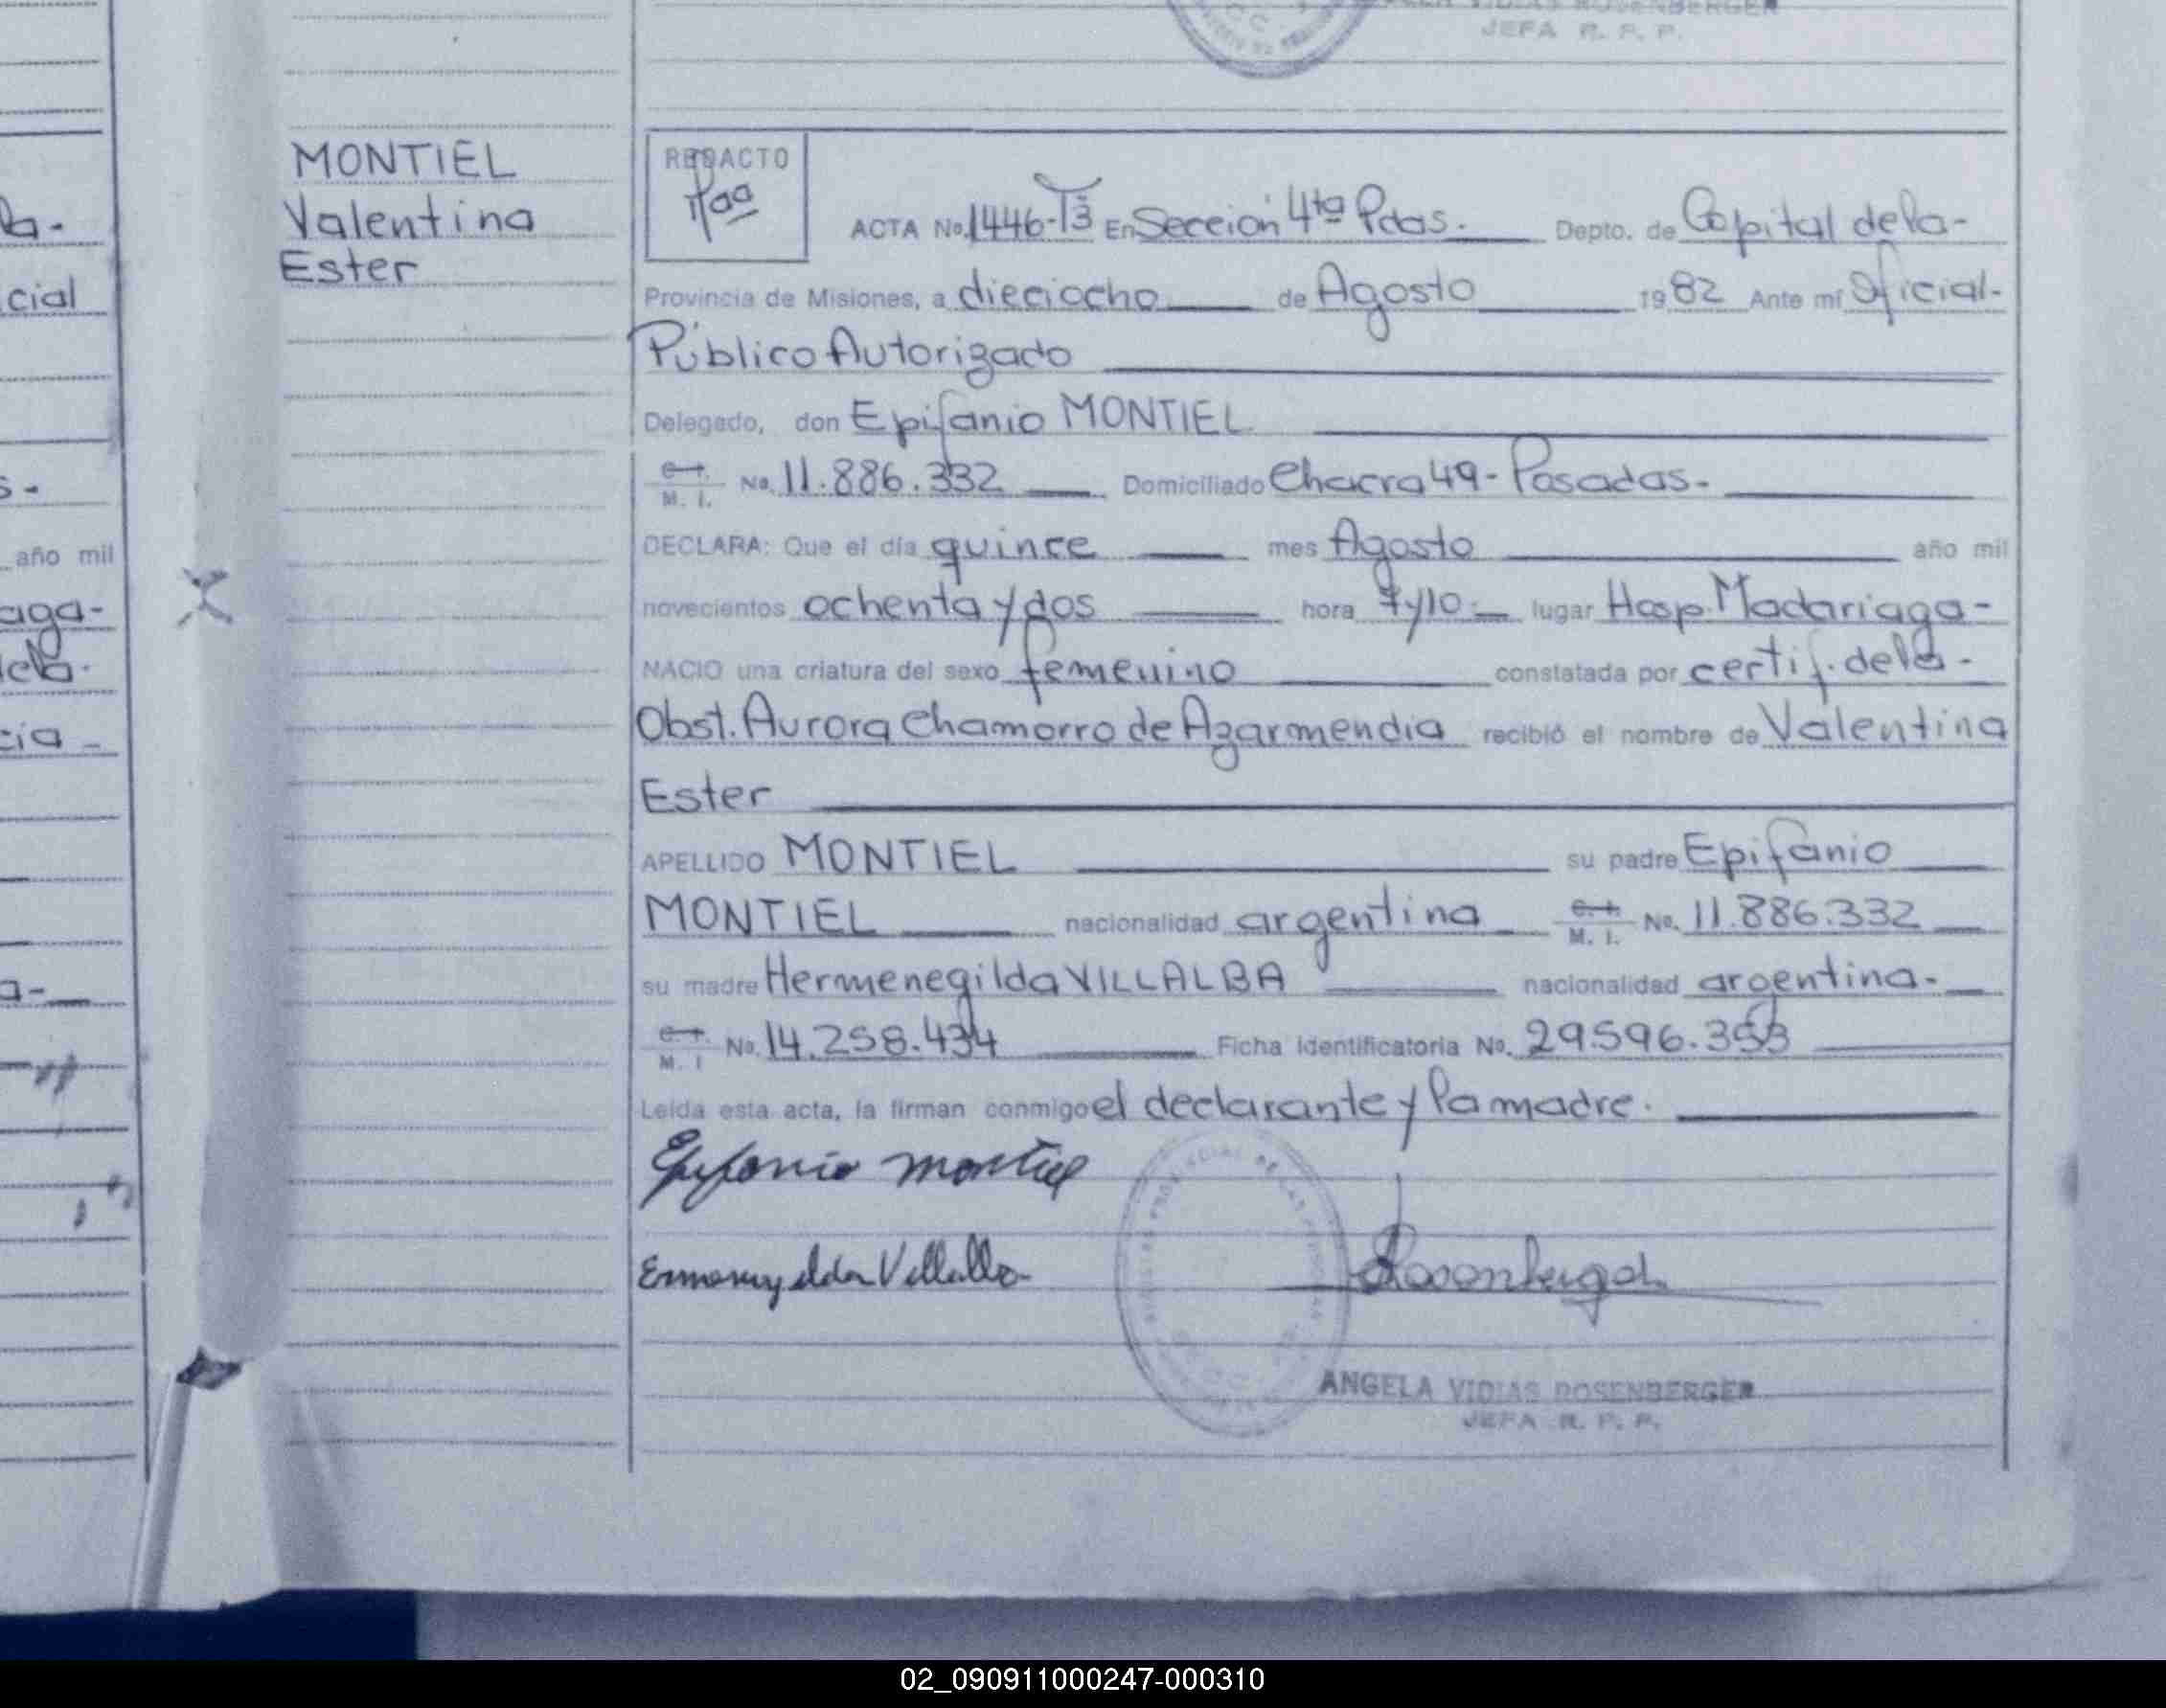 JEFA R. P. P.
MONTIEL
Valentina
Ester
REDACTO
ACTA No. 1446-T3 En Sección 4ta Pdas. Depto. de Capital de la-
Provincia de Misiones, a dieciocho de Agosto 1982 Ante mí Oficial-
Público Autorizado
Delegado, don Epifanio MONTIEL
C. I.
M. I. No. 11.886.332 Domiciliado Chacra 49- Posadas-
DECLARA: Que el día quince mes Agosto año mil
novecientos ochenta y dos hora 7y10- lugar Hosp. Madariaga-
NACIO una criatura del sexo femenino constatada por certif. de la-
Obst. Aurora Chamorro de Azarmendia recibió el nombre de Valentina
Ester
APELLIDO MONTIEL su padre Epifanio
MONTIEL nacionalidad argentina C. I. M. I. No. 11.886.332
su madre Hermenegilda VILLALBA nacionalidad argentina-
C. I. M. I No. 14.258.434 Ficha Identificatoria No. 29.596.353
Leída esta acta, la firman conmigo el declarante y la madre.
Epifanio Montiel
Villalba
Rosenberger
ANGELA VIDIAS ROSENBERGER
JEFA R. P. P.
cial
s-
año mil
aga-
dela-
cia-
02_090911000247-000310